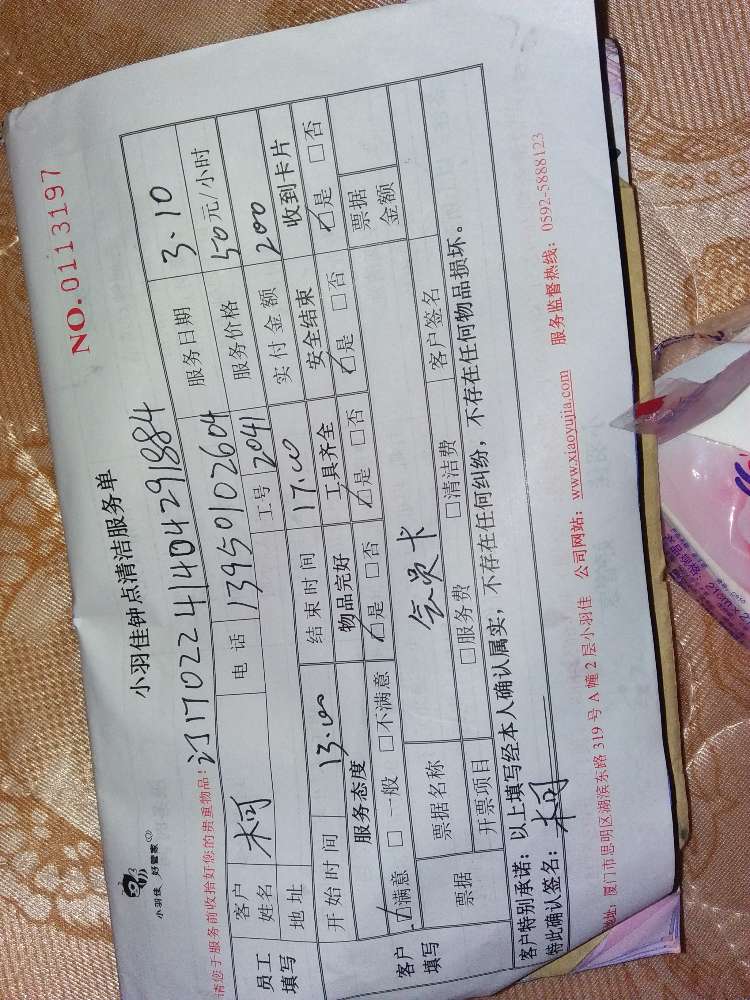 小羽佳 好管家
小羽佳钟点清洁服务单
NO.0113197
请您于服务前收拾好您的贵重物品!
订1702241404291884
员工填写
客户姓名 柯 电话 13950102604 服务日期 3.10
地址 工号 2041 服务价格 50元/小时
开始时间 13.00 结束时间 17.00 实付金额 200
客户填写
服务态度 物品完好 工具齐全 安全结束 收到卡片
☑满意 □一般 □不满意 ☑是 □否 ☑是 □否 ☑是 □否 ☑是 □否
票据 票据名称 会员卡 票据金额
开票项目 □服务费 □清洁费 客户签名
客户特别承诺:以上填写经本人确认属实,不存在任何纠纷,不存在任何物品损坏。
特此确认签名:柯
地址:厦门市思明区湖滨东路319号A幢2层小羽佳 公司网站:www.xiaoyujia.com 服务监督热线:0592-5888123